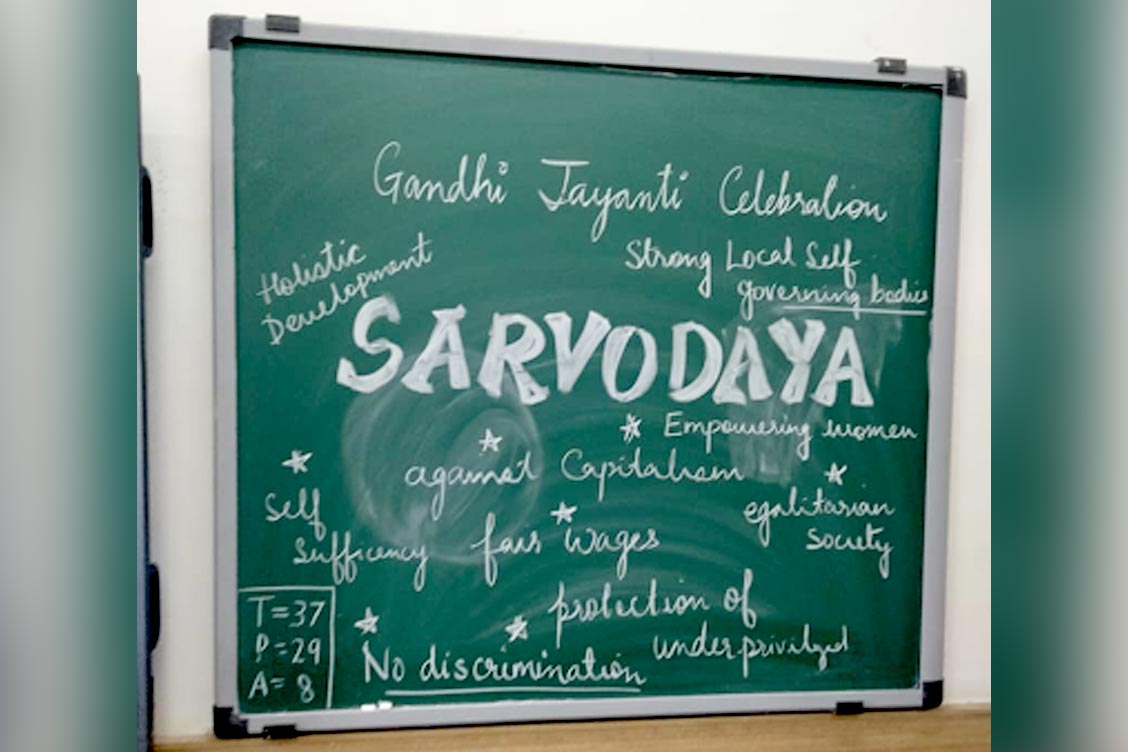 Gandhi Jayanti Celebration
Holistic
Development
Strong Local Self
governing bodies
SARVODAYA
Empowering women
against Capitalism
Self
Sufficency
fair wages
egalitarian
Society
protection of
underprivilged
No discrimination
T=37
P=29
A=8